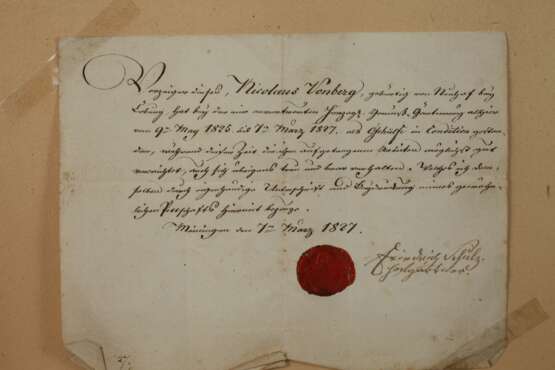 Vorzeiger dieses, Nicolaus Vonberg, gebürtig von Neuhof bey
Coburg, hat bey der mir anvertrauten Herzogl. Gemüß-Gärtnerey allhier
vom 9ten May 1825 bis 1ten März 1827, als Gehülfe in Condition gestan-
den, während dieser Zeit die ihm aufgetragenen Arbeiten möglichst gut
verrichtet, auch sich übrigens treu und brav verhalten. Welches ich dem-
selben durch eigenhändige Unterschrift und Beydrückung meines gewöhn-
lichen Pettschafts hiermit bezeuge.
Meiningen den 1ten März 1827.
Friedrich Schulz
Hofgärtner